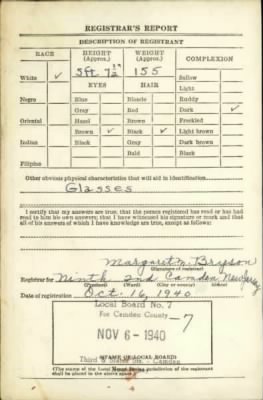 REGISTRAR'S REPORT
DESCRIPTION OF REGISTRANT
RACE HEIGHT (Approx.) WEIGHT (Approx.) COMPLEXION
White ✓ 5ft 7½" 155 Sallow
EYES HAIR Light
Negro Blue Blonde Ruddy
Gray Red Dark ✓
Oriental Hazel Brown Freckled
Brown ✓ Black ✓ Light brown
Indian Black Gray Dark brown
Bald Black
Filipino
Other obvious physical characteristics that will aid in identification
Glasses
I certify that my answers are true; that the person registered has read or has had
read to him his own answers; that I have witnessed his signature or mark and that
all of his answers of which I have knowledge are true, except as follows:
Margaret M. Bryson
(Signature of registrar)
Registrar for Ninth 2nd Camden New Jersey
(Precinct) (Ward) (City or County) (State)
Date of registration Oct. 16, 1940
Local Board No. 7
For Camden County -7
NOV 6 - 1940
Third & Camden
(STAMP OF LOCAL BOARD)
(The stamp of the Local Board having jurisdiction of the registrant
shall be placed in the above space)